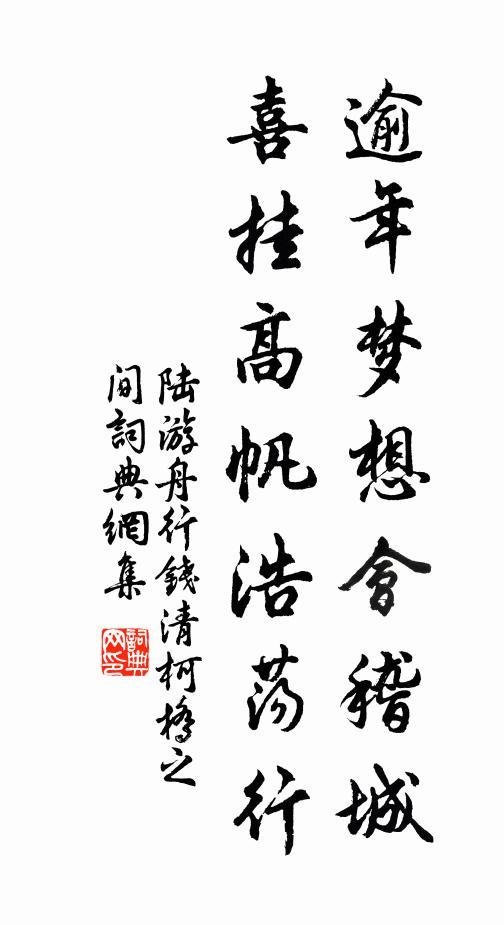 逾年梦想會稽城
喜挂高帆浩荡行
陆游舟行錢清柯橋之
间詞典網集
詞典网印